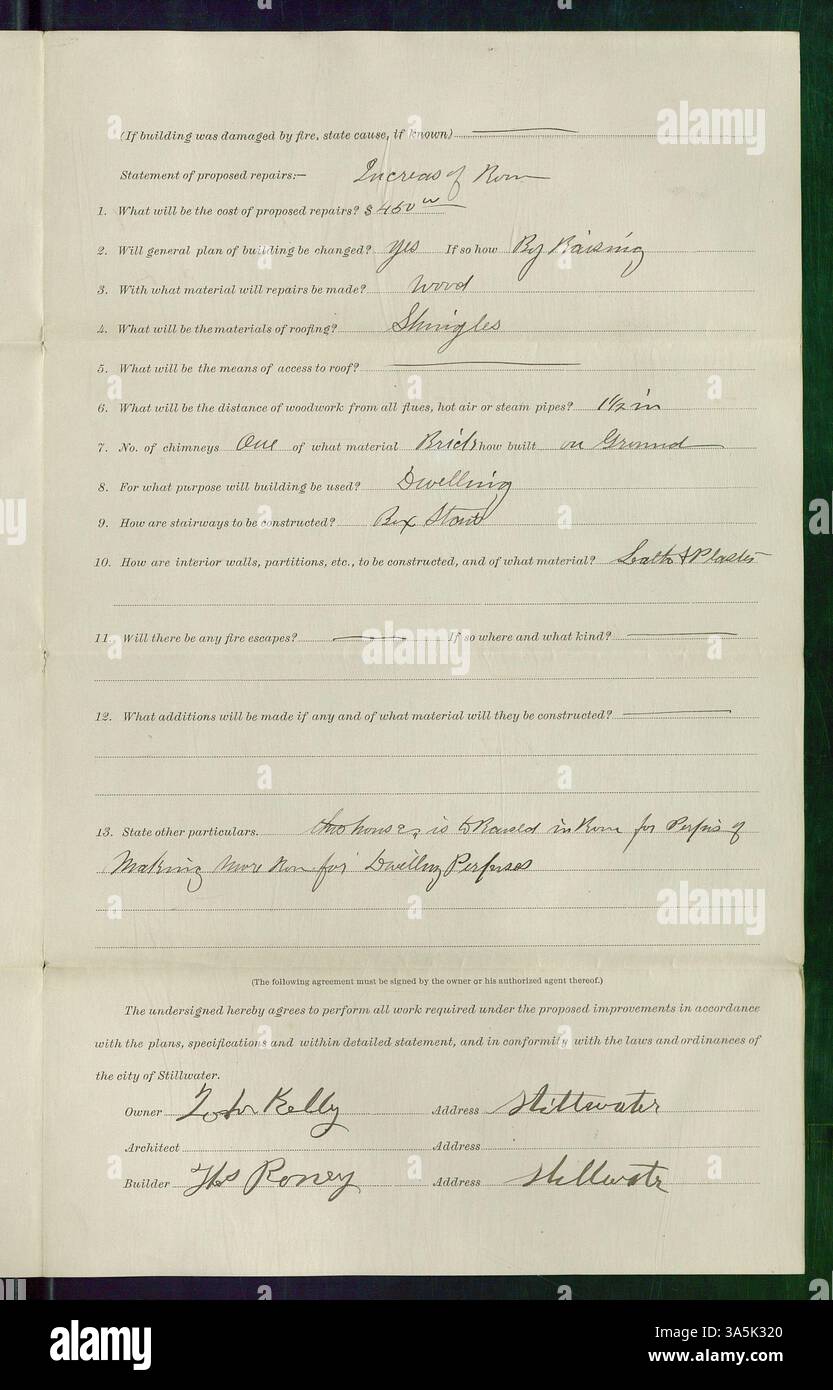 (If building was damaged by fire, state cause, if known)
Statement of proposed repairs:— Increas of Rom
1. What will be the cost of proposed repairs? $ 450
2. Will general plan of building be changed? yes If so how By Raising
3. With what material will repairs be made? Wood
4. What will be the materials of roofing? Shingles
5. What will be the means of access to roof?
6. What will be the distance of woodwork from all flues, hot air or steam pipes? 1½ in
7. No. of chimneys One of what material Brick how built on Ground
8. For what purpose will building be used? Dwelling
9. How are stairways to be constructed? Box
10. How are interior walls, partitions, etc., to be constructed, and of what material? Lath & Plaster
11. Will there be any fire escapes? If so where and what kind?
12. What additions will be made if any and of what material will they be constructed?
13. State other particulars. house is for of
Making More Rom for Dwelling
(The following agreement must be signed by the owner or his authorized agent thereof.)
The undersigned hereby agrees to perform all work required under the proposed improvements in accordance
with the plans, specifications and within detailed statement, and in conformity with the laws and ordinances of
the city of Stillwater.
Owner Kelly Address Stillwater
Architect Address
Builder Ths Roney Address Stillwater
alamy
alamy
alamy
Image ID: 3A5K320
www.alamy.com